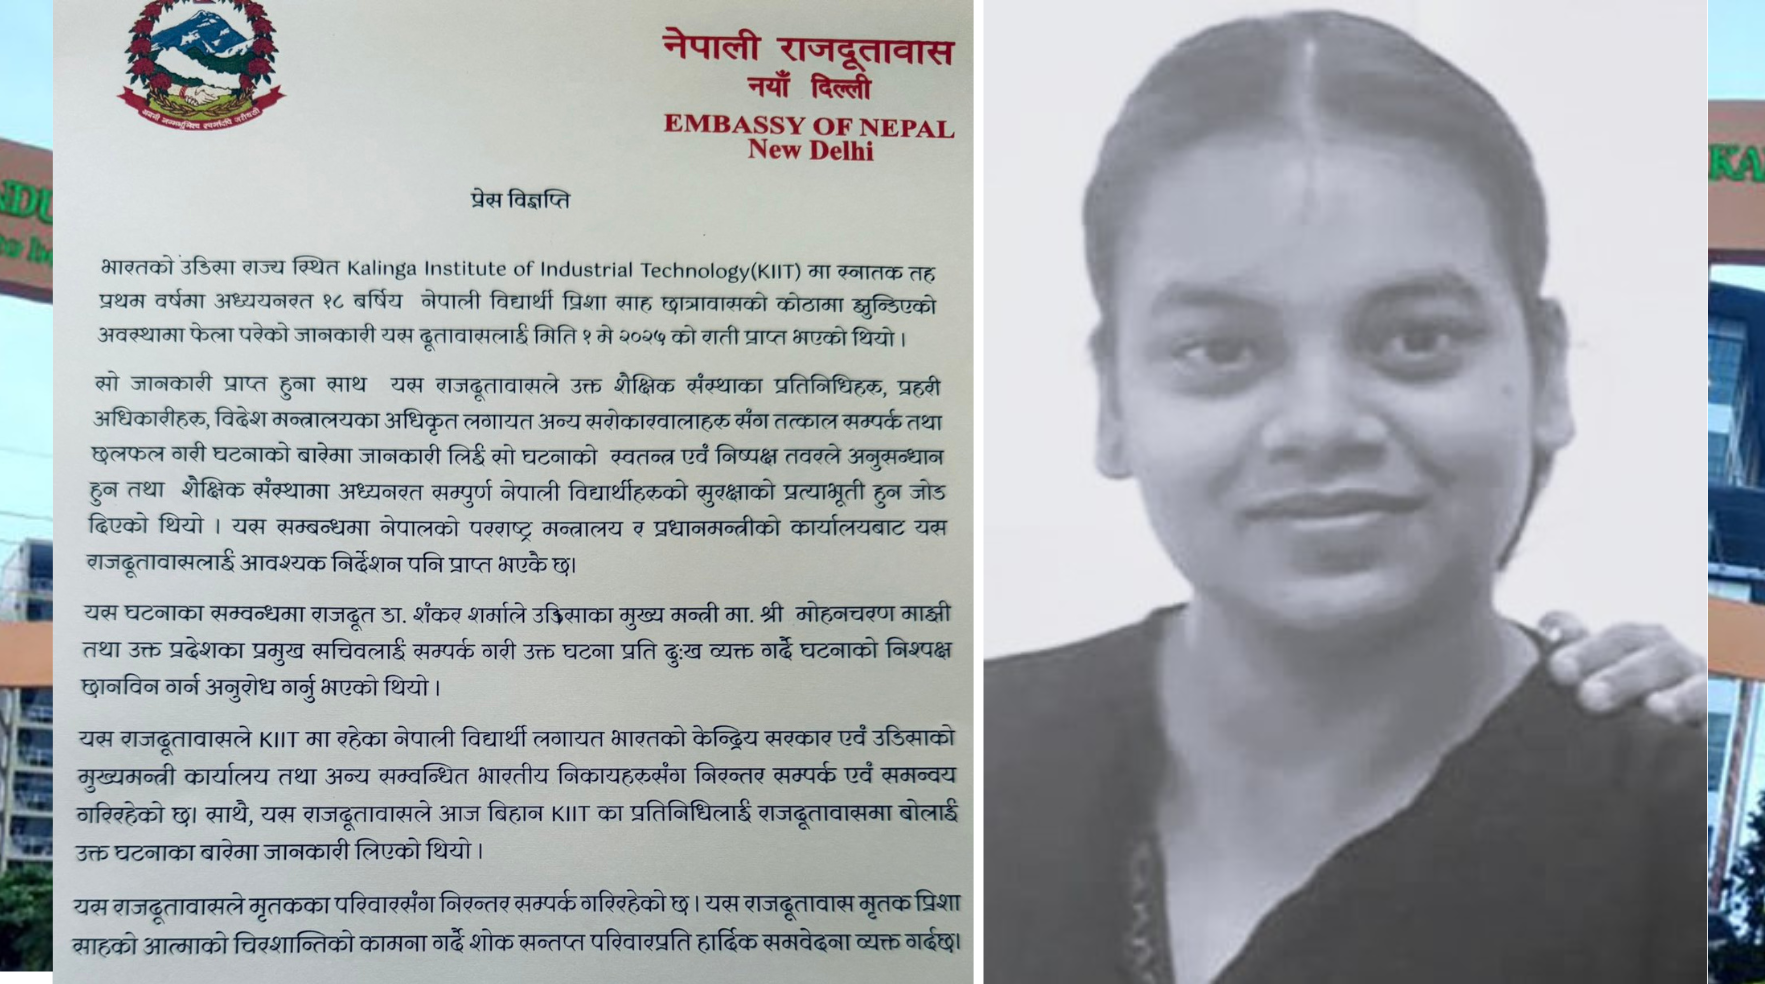 नेपाली राजदूतावास
नयाँ दिल्ली
EMBASSY OF NEPAL
New Delhi
प्रेस विज्ञप्ति
भारतको उडिसा राज्य स्थित Kalinga Institute of Industrial Technology(KIIT) मा स्नातक तह
प्रथम वर्षमा अध्ययनरत १८ बर्षिय नेपाली विद्यार्थी प्रिशा साह छात्रावासको कोठामा झुन्डिएको
अवस्थामा फेला परेको जानकारी यस दूतावासलाई मिति १ मे २०२५ को राती प्राप्त भएको थियो ।
सो जानकारी प्राप्त हुना साथ यस राजदूतावासले उक्त शैक्षिक संस्थाका प्रतिनिधिहरु, प्रहरी
अधिकारीहरु, विदेश मन्त्रालयका अधिकृत लगायत अन्य सरोकारवालाहरु संग तत्काल सम्पर्क तथा
छलफल गरी घटनाको बारेमा जानकारी लिई सो घटनाको स्वतन्त्र एवं निष्पक्ष तवरले अनुसन्धान
हुन तथा शैक्षिक संस्थामा अध्यनरत सम्पुर्ण नेपाली विद्यार्थीहरुको सुरक्षाको प्रत्याभूती हुन जोड
दिएको थियो । यस सम्बन्धमा नेपालको परराष्ट्र मन्त्रालय र प्रधानमन्त्रीको कार्यालयबाट यस
राजदूतावासलाई आवश्यक निर्देशन पनि प्राप्त भएकै छ।
यस घटनाका सम्वन्धमा राजदूत डा. शंकर शर्माले उडिसाका मुख्य मन्त्री मा. श्री मोहनचरण माझी
तथा उक्त प्रदेशका प्रमुख सचिवलाई सम्पर्क गरी उक्त घटना प्रति दुःख व्यक्त गर्दै घटनाको निश्पक्ष
छानविन गर्न अनुरोध गर्नु भएको थियो ।
यस राजदूतावासले KIIT मा रहेका नेपाली विद्यार्थी लगायत भारतको केन्द्रिय सरकार एवं उडिसाको
मुख्यमन्त्री कार्यालय तथा अन्य सम्वन्धित भारतीय निकायहरुसंग निरन्तर सम्पर्क एवं समन्वय
गरिरहेको छ। साथै, यस राजदूतावासले आज बिहान KIIT का प्रतिनिधिलाई राजदूतावासमा बोलाई
उक्त घटनाका बारेमा जानकारी लिएको थियो ।
यस राजदूतावासले मृतकका परिवारसंग निरन्तर सम्पर्क गरिरहेको छ । यस राजदूतावास मृतक प्रिशा
साहको आत्माको चिरशान्तिको कामना गर्दै शोक सन्तप्त परिवारप्रति हार्दिक समवेदना व्यक्त गर्दछ।